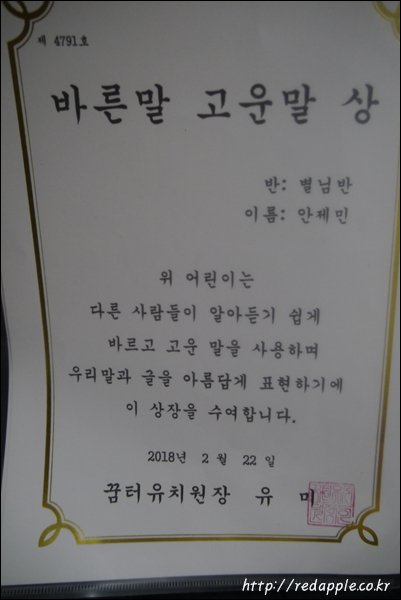 제 4791호
바른말 고운말 상
반: 별님반
이름: 안제민
위 어린이는
다른 사람들이 알아듣기 쉽게
바르고 고운 말을 사용하며
우리말과 글을 아름답게 표현하기에
이 상장을 수여합니다.
2018년 2 월 22 일
꿈터유치원장 유 미
http://redapple.co.kr